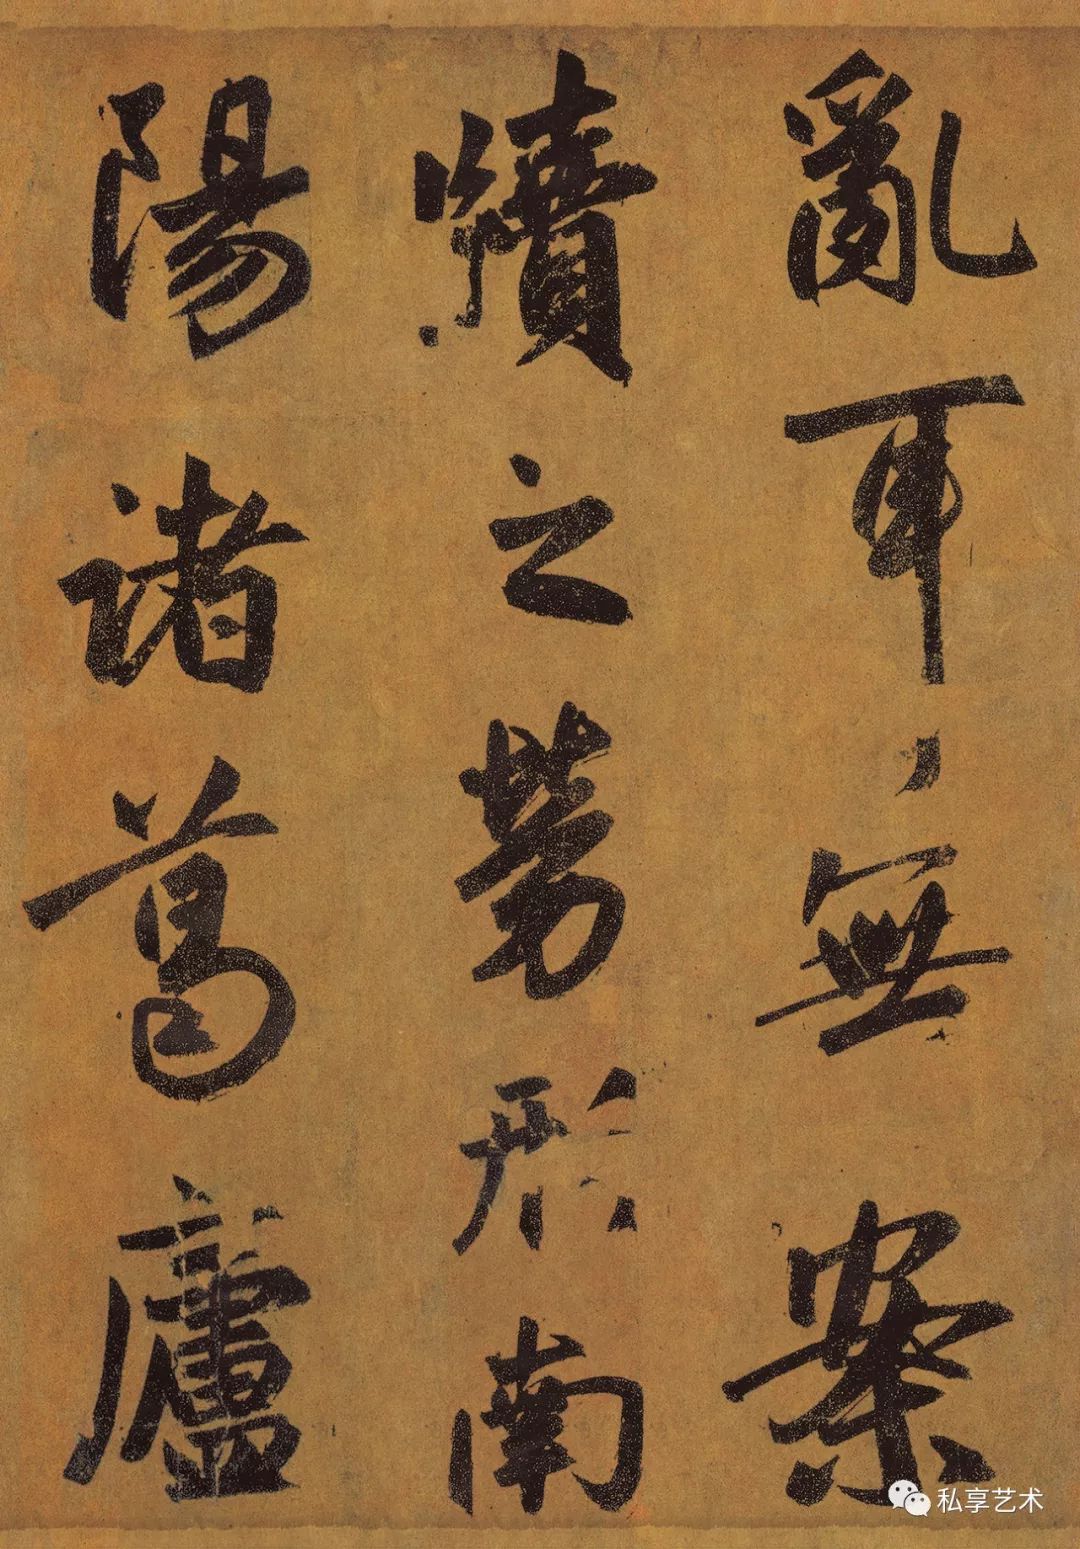 亂耳無案
牘之勞形南
陽諸葛廬
私享艺术